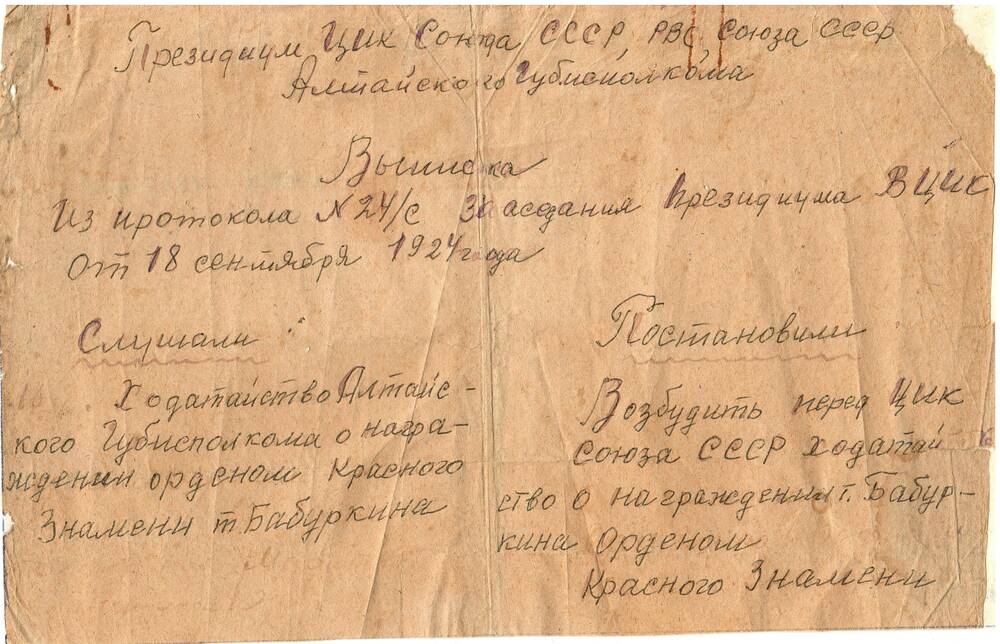 Президиум ЦИК Союза СССР, РВС, Союза СССР
Алтайского Губисполкома
Выписка
Из протокола № 24/с Заседания Президиума ВЦИК
От 18 сентября 1924 года
Слушали:
Ходатайство Алтайс-
кого Губисполкома о награ-
ждении орденом Красного
Знамени т. Бабуркина
Постановили
Возбудить перед ЦИК
союза СССР ходатай
ство о награждении т. Бабур-
кина Орденом
Красного Знамени